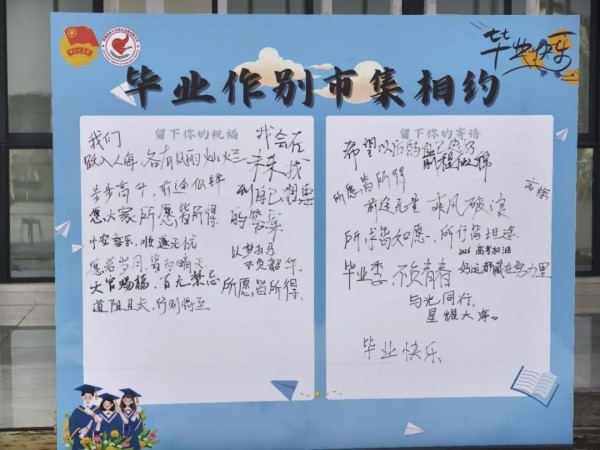 毕业快乐
毕业作别市集相约
留下你的祝福
我们
跌入人海,各有风雨灿烂
步步高升 前途似锦
愿大家所愿皆所得
平安喜乐,顺遂无忧
愿若岁月,皆为晴天
天官赐福,百无禁忌
道阻且长,行则将至
我会在
未来找
到自己想要
的答案
以梦为马
不负韶华
所愿皆所得
留下你的寄语
希望以后的
前程似锦
所愿皆所得
前途无量 乘风破浪
所求皆如愿,所行皆坦途
高考加油
毕业季,不负青春
好运都藏在努力里
与光同行,
星耀大海。
毕业快乐